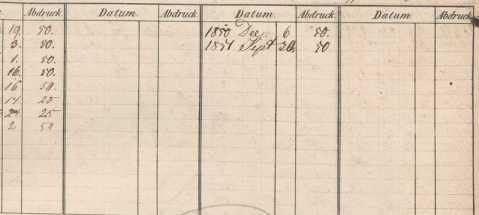 Abdruck. Datum. Abdruck. Datum. Abdruck. Datum. Abdruck
19. 50. 1850 Dec. 6 50.
3. 50. 1851 Sept 30. 50
1. 50.
16. 50.
16 50.
14. 25
24. 25
2 50